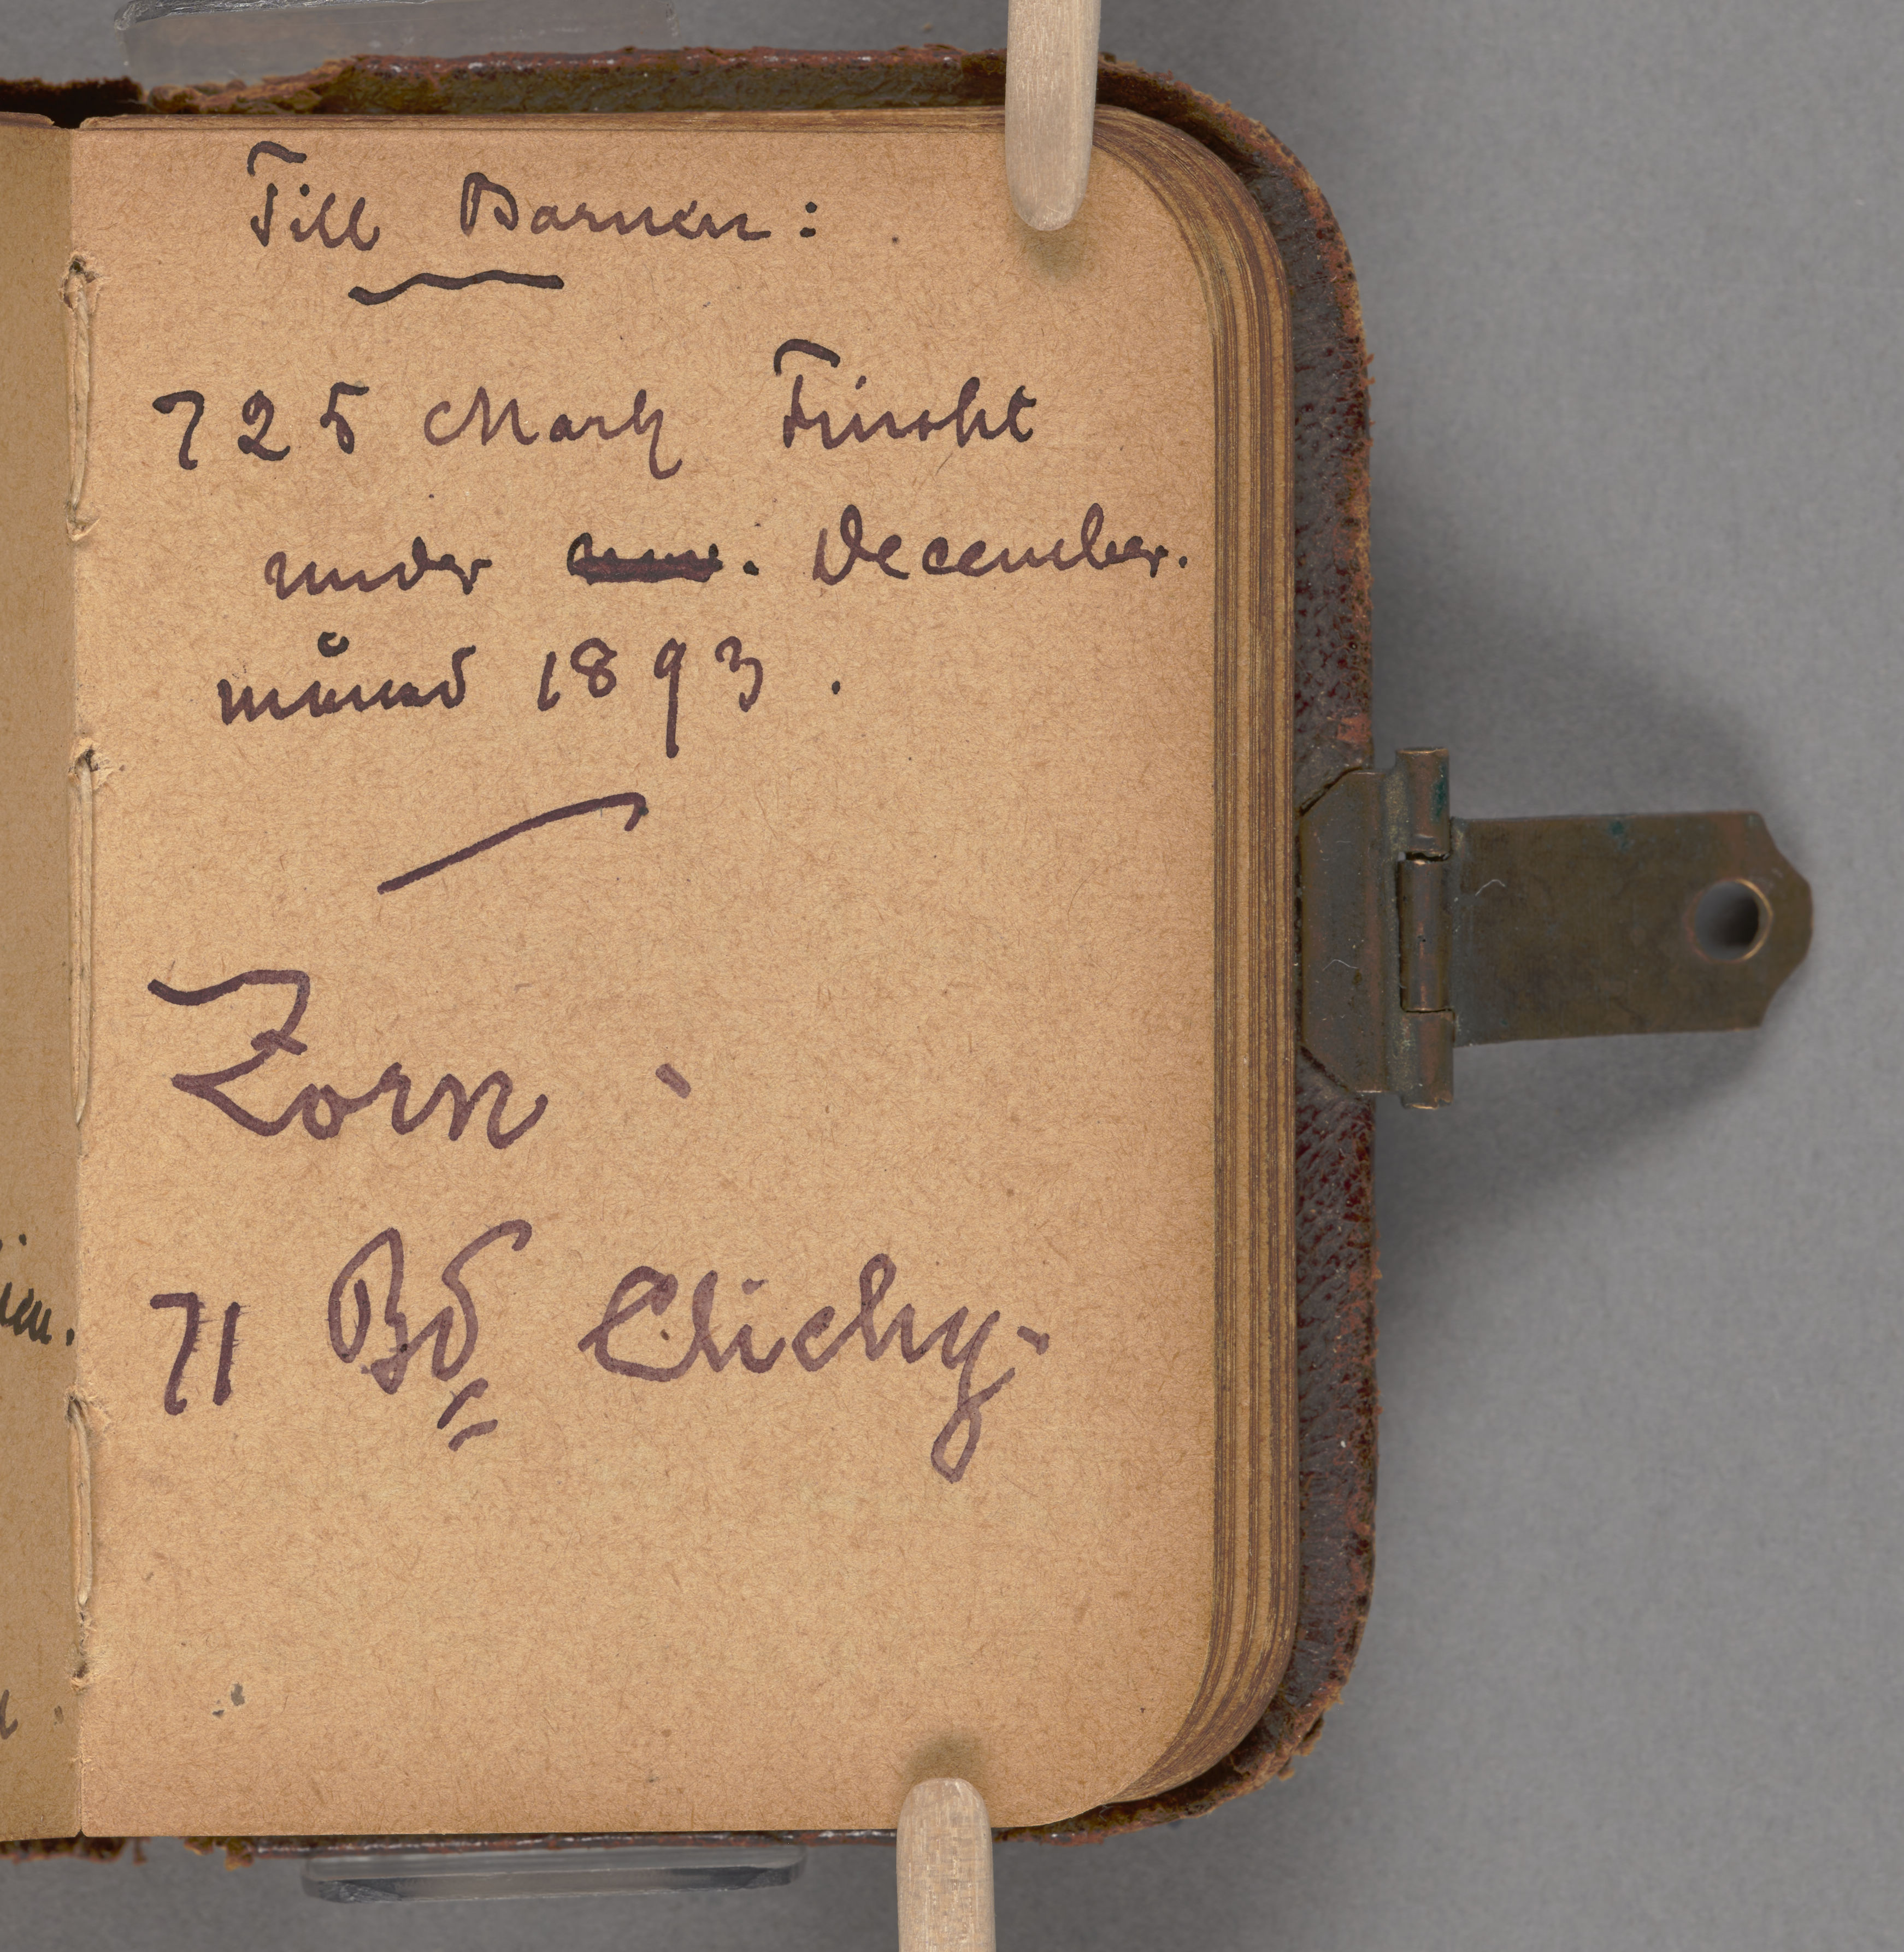 Till Barnen:
725 Mark Finskt
under . December.
månad 1893.
Zorn
71 Bd Clichy.